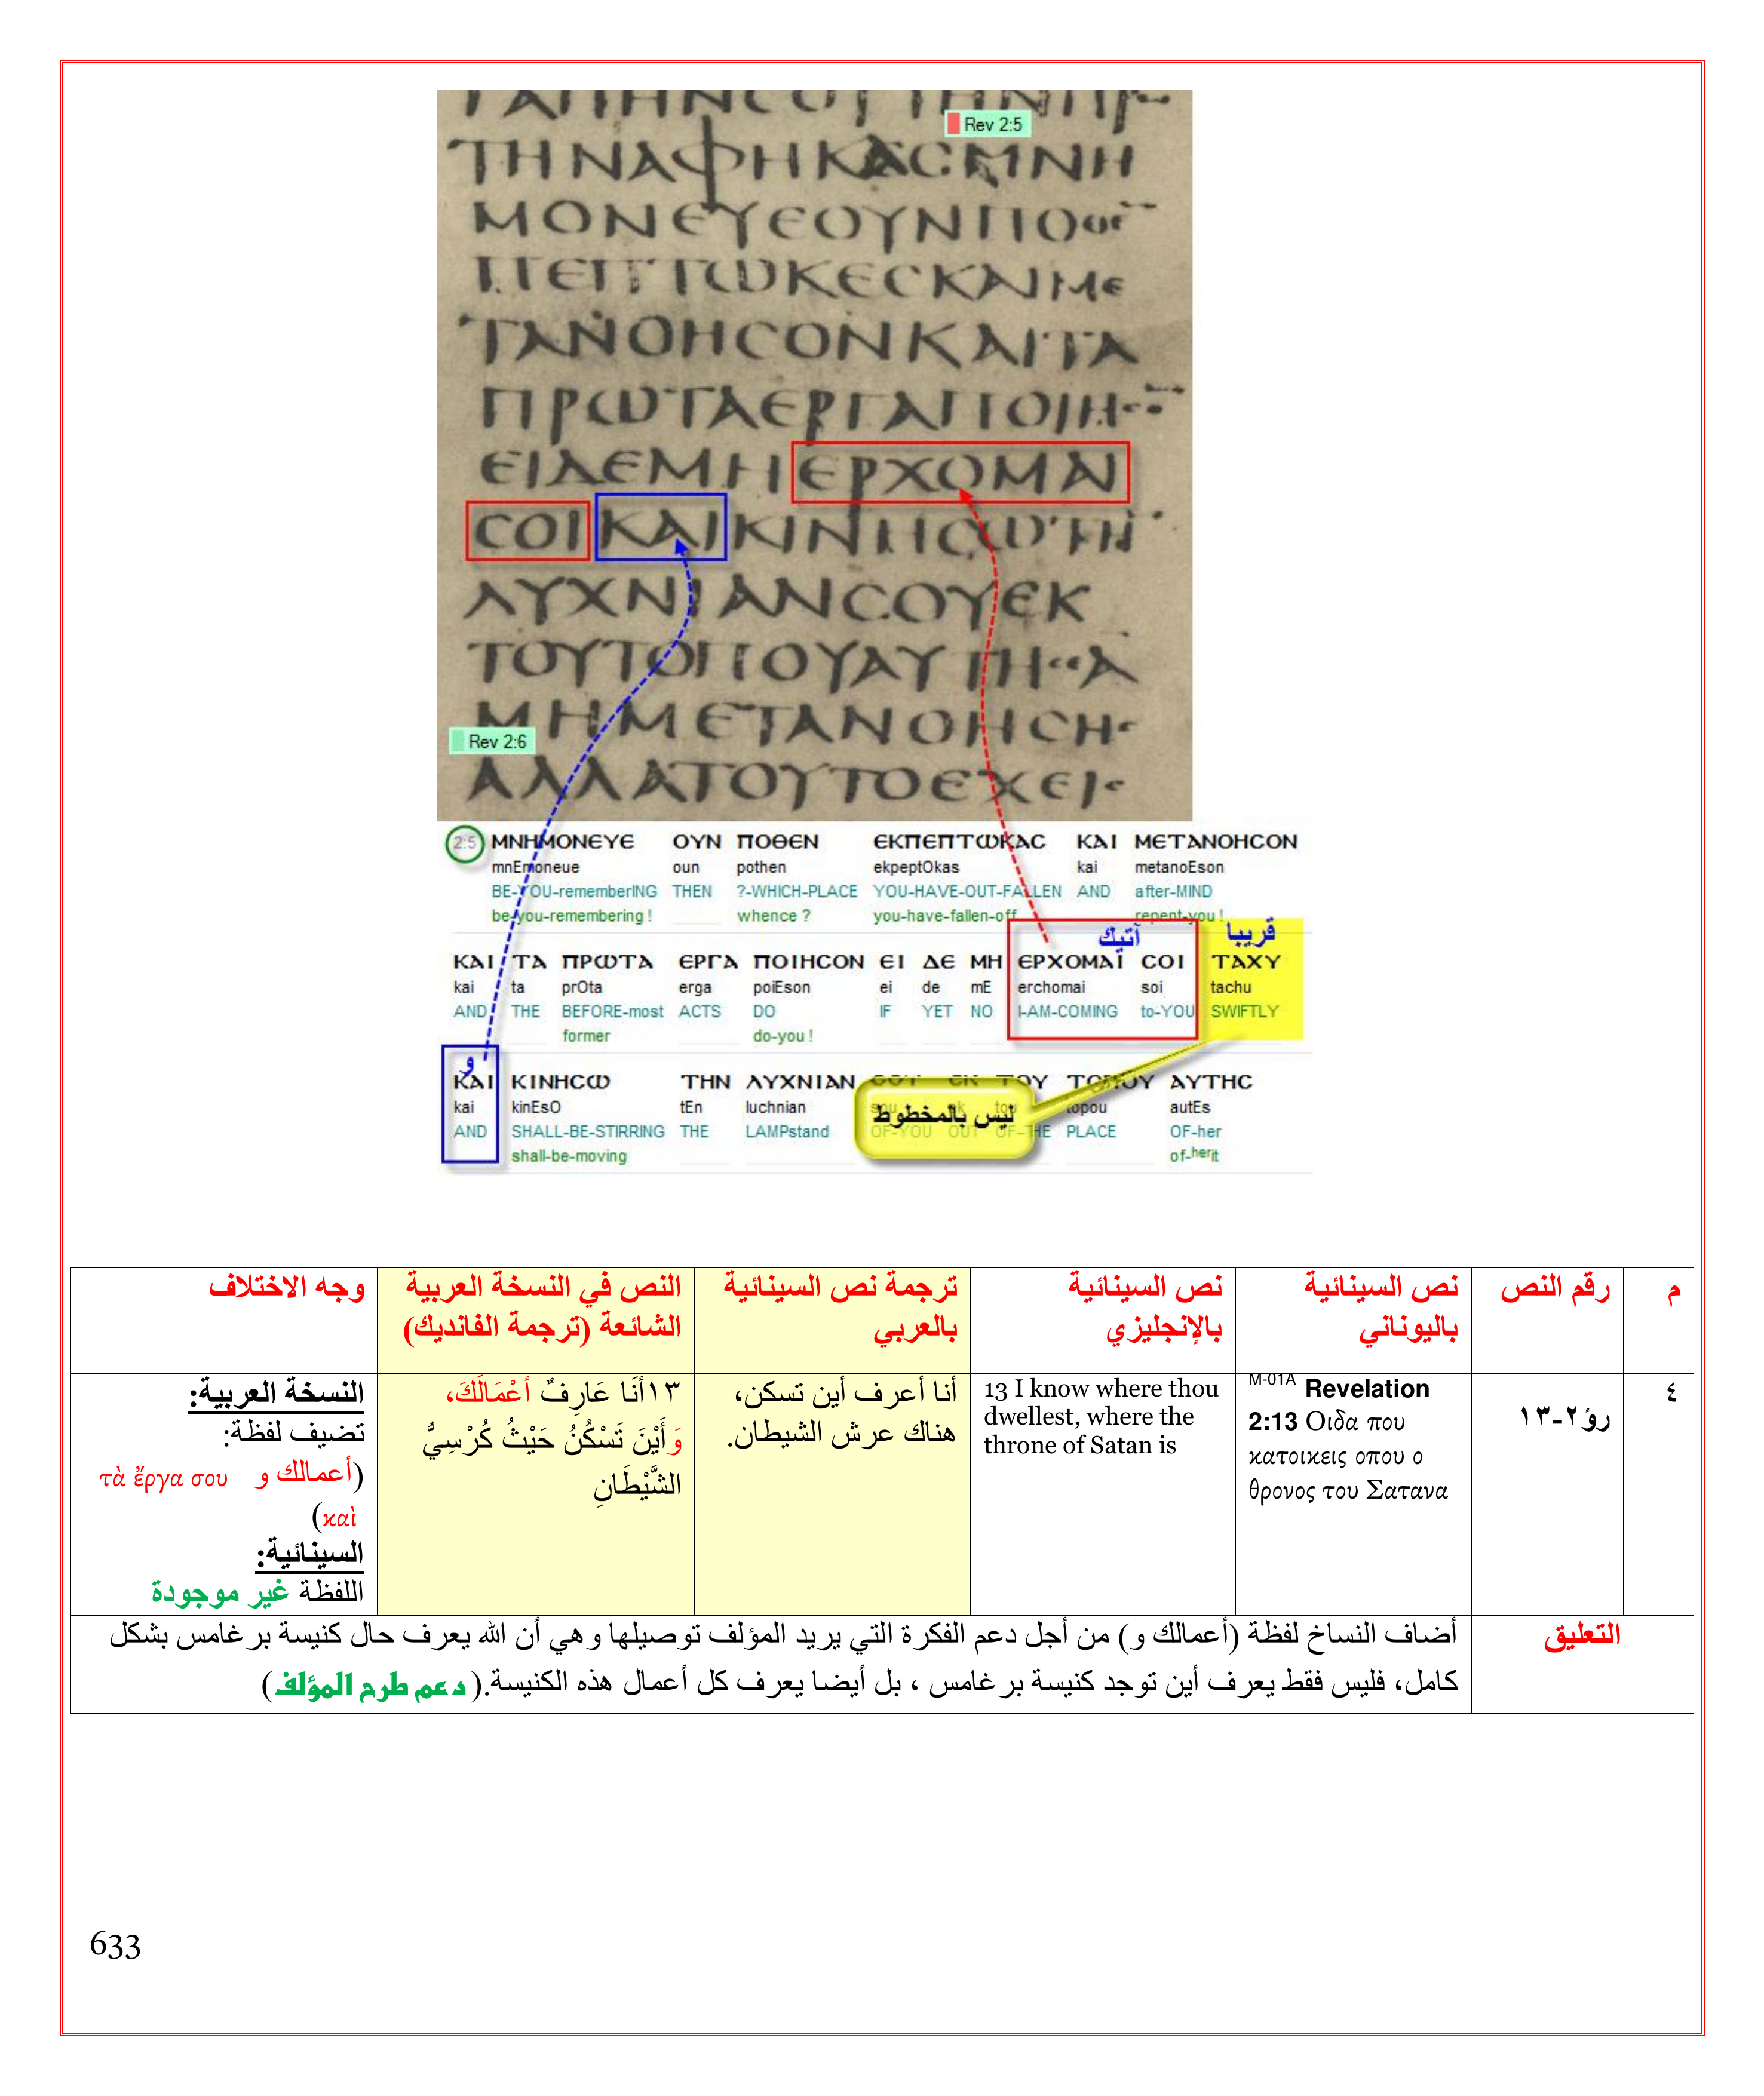 Rev 2:5
ΤΗΝΑΦΗΚΑϹΜΝΗ
ΜΟΝΕΥΕΟΥΝΠΟ
ΤΑΝΟΗϹΟΝΚΑΙΤΑ
ΠΡΩΤΑΕΡΓΑΠΟΙΗ
ΕΙΔΕΜΗΕΡΧΟΜΑΙ
ϹΟΙΚΑΙΚΙΝΗϹΩΤΗ
ΛΥΧΝΙΑΝϹΟΥΕΚ
ΤΟΥΤΟΠΟΥΑΥΤΗ
ΜΗΜΕΤΑΝΟΗϹΗ
Rev 2:6
ΑΛΛΑΤΟΥΤΟΕΧΕΙ
2:5 ΜΝΗΜΟΝΕΥΕ ΟΥΝ ΠΟΘΕΝ ΕΚΠΕΠΤΩΚΑϹ ΚΑΙ ΜΕΤΑΝΟΗϹΟΝ
mnEmoneue oun pothen ekpeptOkas kai metanoEson
BE-YOU-rememberING THEN ?-WHICH-PLACE YOU-HAVE-OUT-FALLEN AND after-MIND
be-you-remembering ! whence ? you-have-fallen-off repent-you !
آتيك قريبا
ΚΑΙ ΤΑ ΠΡΩΤΑ ΕΡΓΑ ΠΟΙΗϹΟΝ ΕΙ ΔΕ ΜΗ ΕΡΧΟΜΑΙ ϹΟΙ ΤΑΧΥ
kai ta prOta erga poiEson ei de mE erchomai soi tachu
AND THE BEFORE-most ACTS DO IF YET NO I-AM-COMING to-YOU SWIFTLY
former do-you !
و
ΚΑΙ ΚΙΝΗϹΩ ΤΗΝ ΛΥΧΝΙΑΝ ϹΟΥ ΕΚ ΤΟΥ ΤΟΠΟΥ ΑΥΤΗϹ
kai kinEsO tEn luchnian sou ek tou topou autEs
ليس بالمخطوط
AND SHALL-BE-STIRRING THE LAMPstand OF-YOU OUT OF-THE PLACE OF-her
shall-be-moving of-herit
م
رقم النص
نص السينائية
باليوناني
نص السينائية
بالإنجليزي
ترجمة نص السينائية
بالعربي
النص في النسخة العربية
الشائعة (ترجمة الفانديك)
وجه الاختلاف
٤
رؤ٢-١٣
M-01A Revelation
2:13 Οιδα που
κατοικεις οπου ο
θρονος του Σατανα
13 I know where thou
dwellest, where the
throne of Satan is
أنا أعرف أين تسكن،
هناك عرش الشيطان.
١٣أنَا عَارِفٌ أعْمَالَكَ،
وَأَيْنَ تَسْكُنُ حَيْثُ كُرْسِيُّ
الشَّيْطَانِ
النسخة العربية:
تضيف لفظة:
(أعمالك و τὰ ἔργα σου
καὶ)
السينائية:
اللفظة غير موجودة
التعليق
أضاف النساخ لفظة (أعمالك و) من أجل دعم الفكرة التي يريد المؤلف توصيلها وهي أن الله يعرف حال كنيسة برغامس بشكل
كامل، فليس فقط يعرف أين توجد كنيسة برغامس ، بل أيضا يعرف كل أعمال هذه الكنيسة.(دعم طرح المؤلف)
633